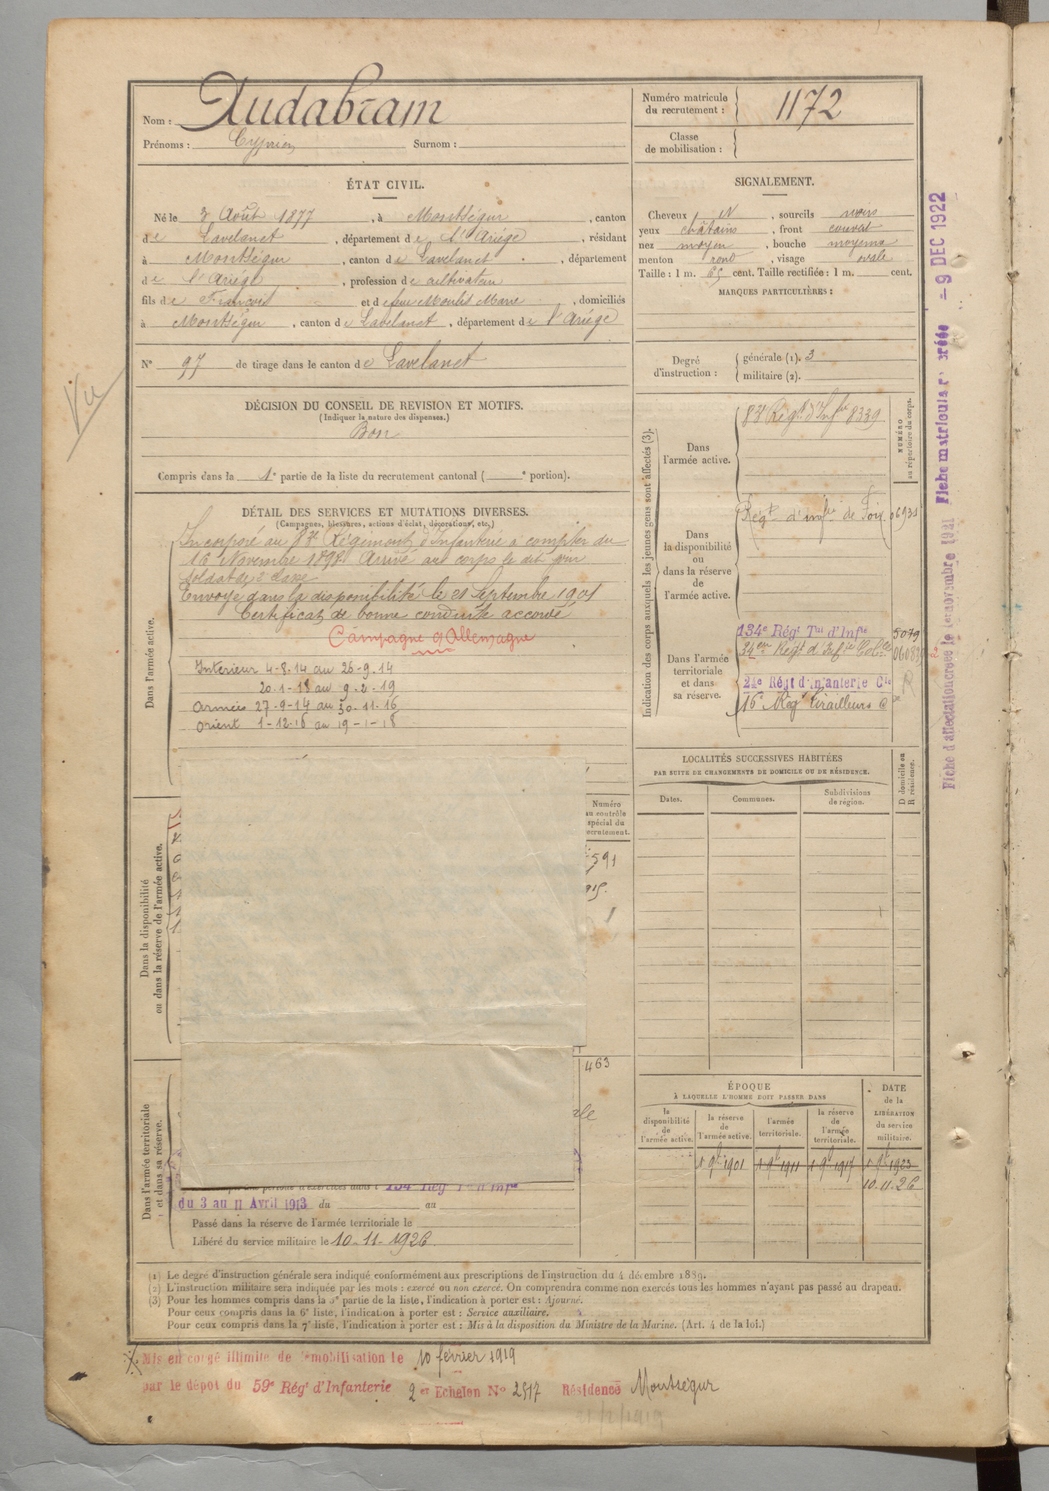 Nom : Audabram
Prénoms : Cyprien Surnom :
Numéro matricule du recrutement : 1172
Classe de mobilisation :
ÉTAT CIVIL.
Né le 3 Août 1877, à Montségur, canton
de Lavelanet, département de l'Ariége, résidant
à Montségur, canton de Lavelanet, département
de l'Ariége, profession de cultivateur
fils de François et de feue Moulis Marie, domiciliés
à Montségur, canton de Lavelanet, département de l'Ariége
N° 97 de tirage dans le canton de Lavelanet
SIGNALEMENT.
Cheveux N, sourcils noirs
yeux châtains, front couvert
nez moyen, bouche moyenne
menton rond, visage ovale
Taille : 1 m. 65 cent. Taille rectifiée : 1 m. cent.
MARQUES PARTICULIÈRES :
Degré d'instruction : générale (1). 3
militaire (2).
Vu
DÉCISION DU CONSEIL DE REVISION ET MOTIFS.
(Indiquer la nature des dispenses.)
Bon
Compris dans la 1e partie de la liste du recrutement cantonal ( e portion).
DÉTAIL DES SERVICES ET MUTATIONS DIVERSES.
(Campagnes, blessures, actions d'éclat, décorations, etc.)
Dans l'armée active.
Incorporé au 83e Régiment d'Infanterie à compter du
16 Novembre 1898. Arrivé au corps le dit jour
soldat de 2e classe
Envoyé dans la disponibilité le 21 Septembre 1901
Certificat de bonne conduite accordé
Campagne c/ Allemagne
Intérieur 4-8-14 au 26-9-14
20-1-18 au 9-2-19
Armées 27-9-14 au 30-11-16
Orient 1-12-16 au 19-1-18
Dans la disponibilité ou dans la réserve de l'armée active.
Numéro au contrôle spécial du recrutement.
591
463
Dans l'armée territoriale et dans sa réserve.
134e Rég. Terr. d'Infie
du 3 au 11 Avril 1913 du au
Passé dans la réserve de l'armée territoriale le
Libéré du service militaire le 10-11-1926
Indication des corps auxquels les jeunes gens sont affectés (3).
NUMÉRO au répertoire du corps.
Dans l'armée active.
83e Régt d'Infie 8339
Dans la disponibilité ou dans la réserve de l'armée active.
Régt d'infie de Foix 06931
Dans l'armée territoriale et dans sa réserve.
134e Régt Tal d'Infie 5079
34em Régt d'Infie Cole
24e Régt d'infanterie Cle
16e Régt Tirailleurs
R
LOCALITÉS SUCCESSIVES HABITÉES
PAR SUITE DE CHANGEMENTS DE DOMICILE OU DE RÉSIDENCE.
Dates. Communes. Subdivisions de région. D domicile ou R résidence.
ÉPOQUE
À LAQUELLE L'HOMME DOIT PASSER DANS
la disponibilité de l'armée active. la réserve de l'armée active. l'armée territoriale. la réserve de l'armée territoriale.
DATE de la LIBÉRATION du service militaire.
1 9bre 1901 1 9bre 1911 1 9bre 1917 1 9bre 1923
10.11.26
(1) Le degré d'instruction générale sera indiqué conformément aux prescriptions de l'instruction du 4 décembre 1889.
(2) L'instruction militaire sera indiquée par les mots : exercé ou non exercé. On comprendra comme non exercés tous les hommes n'ayant pas passé au drapeau.
(3) Pour les hommes compris dans la 5e partie de la liste, l'indication à porter est : Ajourné.
Pour ceux compris dans la 6e liste, l'indication à porter est : Service auxiliaire.
Pour ceux compris dans la 7e liste, l'indication à porter est : Mis à la disposition du Ministre de la Marine. (Art. 4 de la loi.)
Mis en congé illimité de démobilisation le 10 février 1919
par le dépot du 59e Régt d'Infanterie 2er Echelon No 2517 Résidence Montségur
Fiche d'affectation créée le 1er novembre 1921 Fiche matricule r créée - 9 DEC 1922